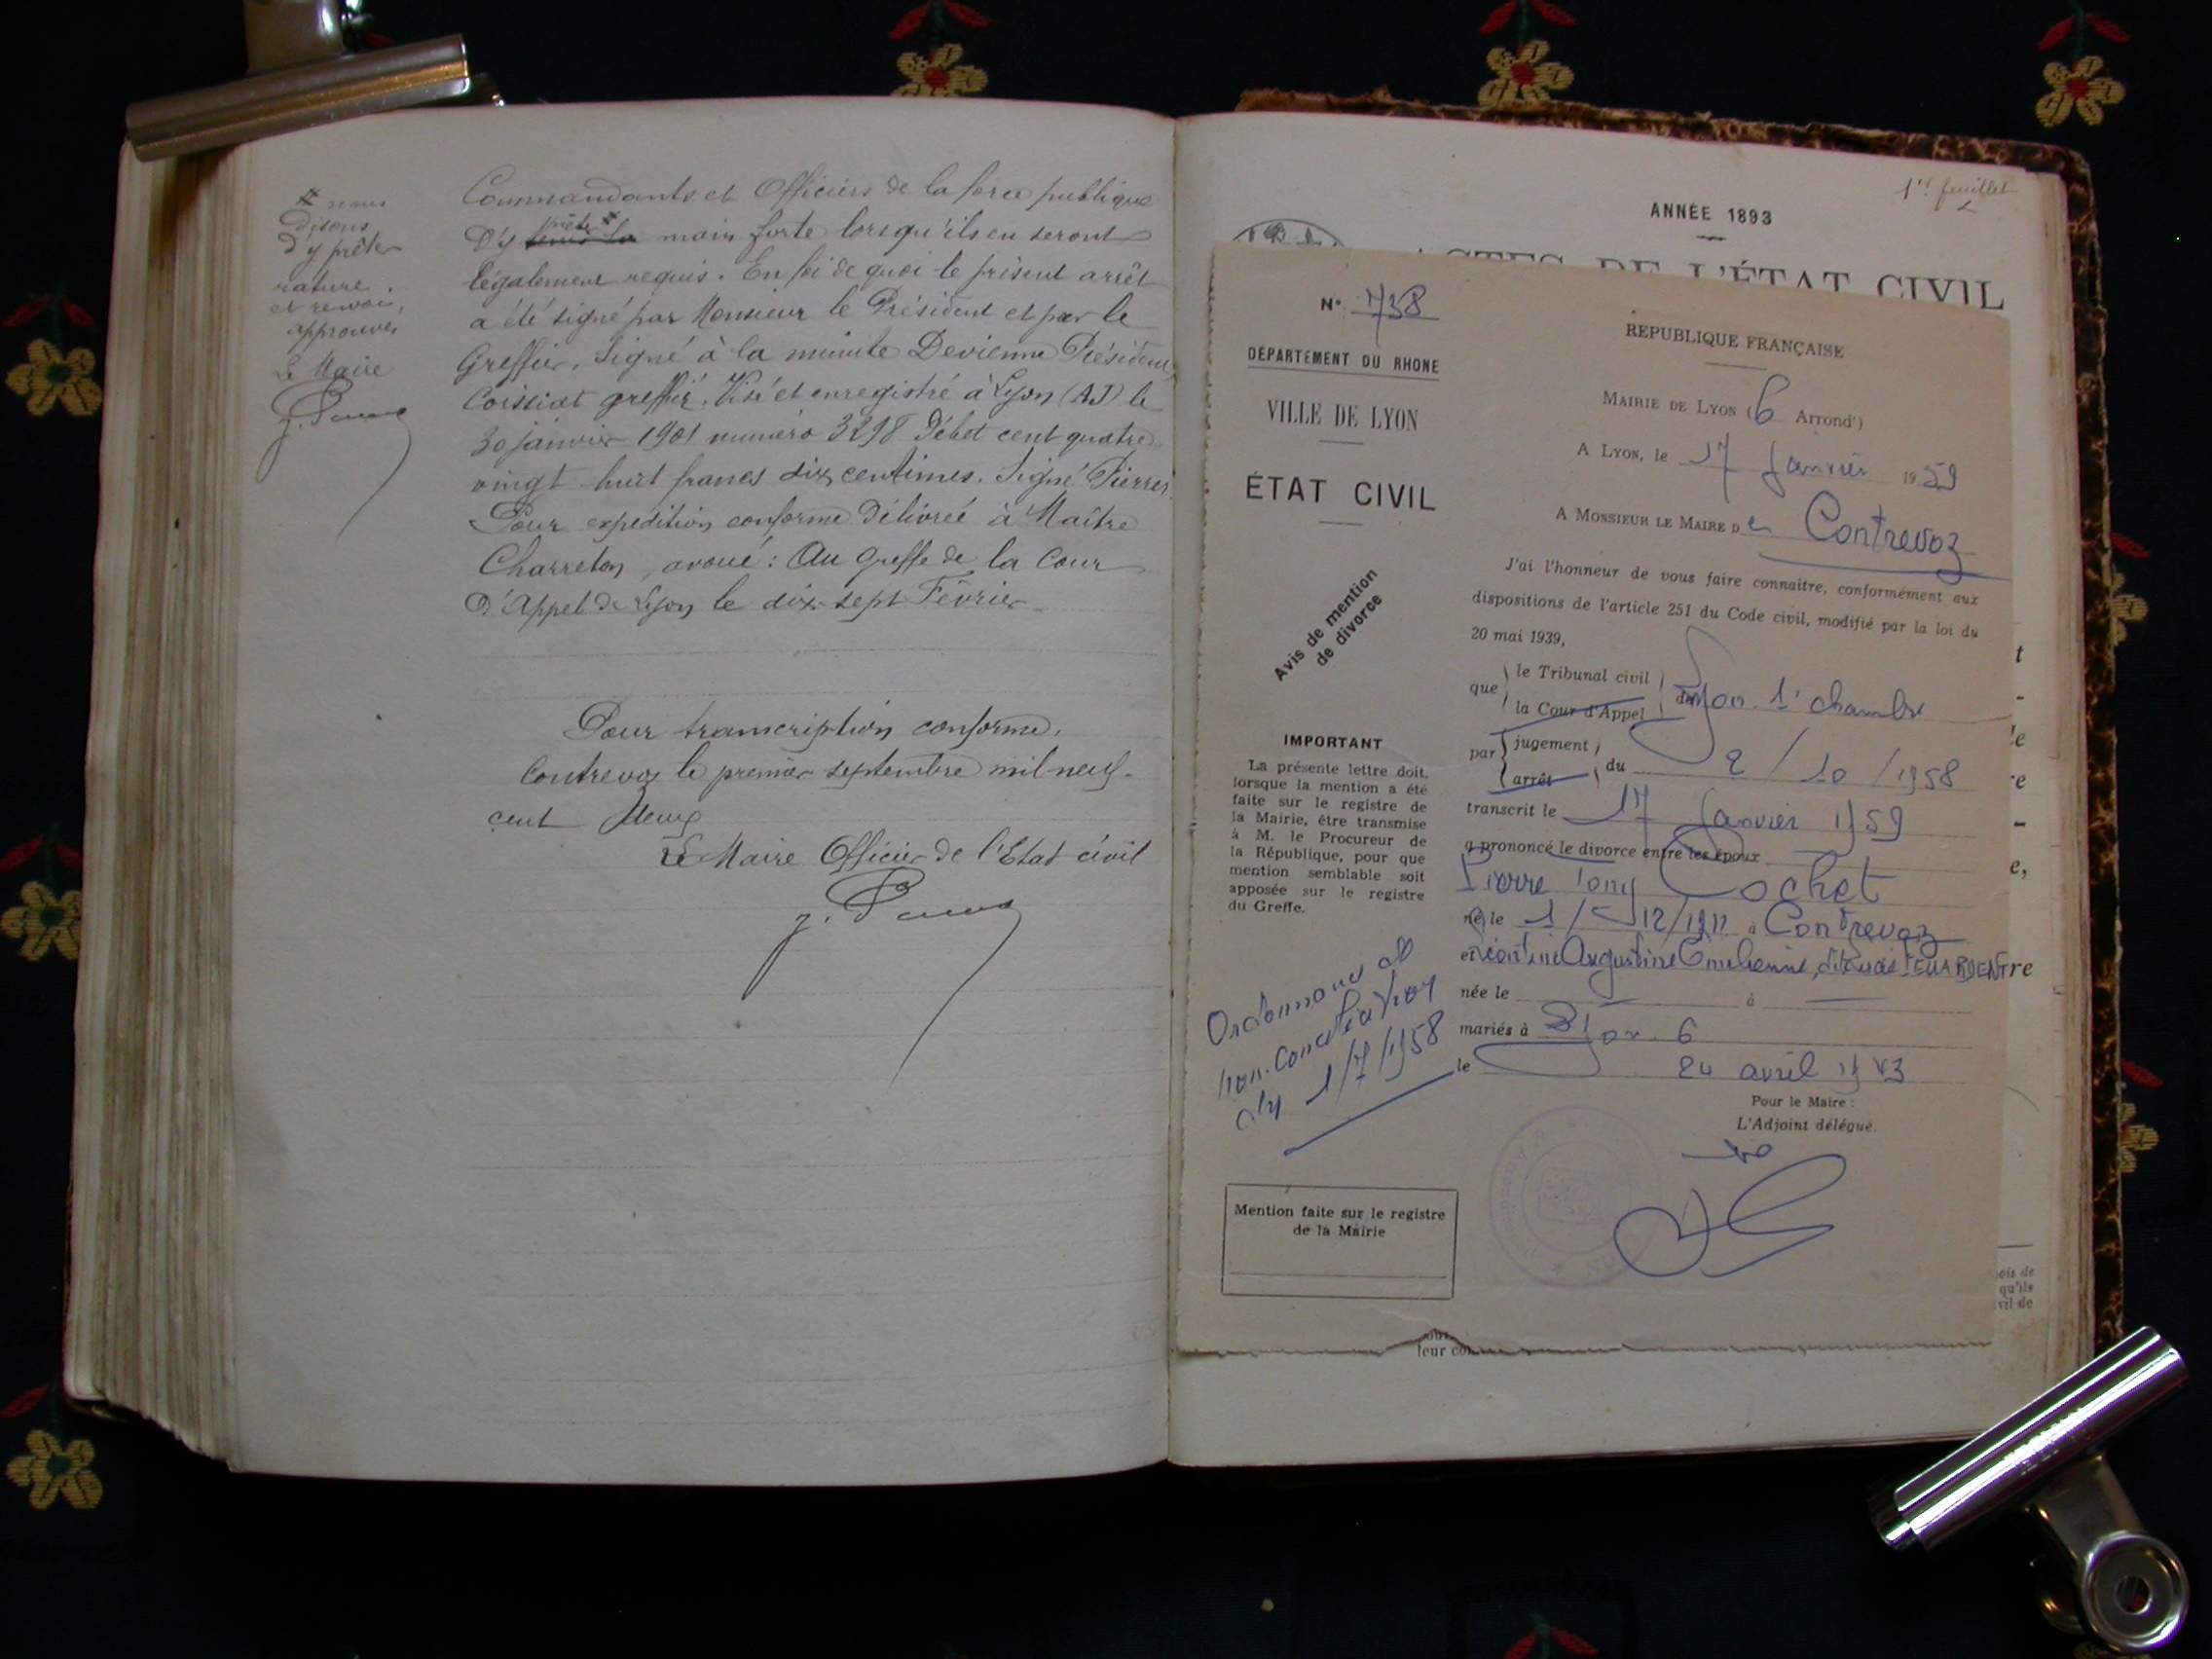 # nous
disons
d'y prêter
rature
et renvoi,
approuvés
Le Maire
Commandants et Officiers de la force publique
D'y prêter # tenir la main forte lorsqu'ils en seront
légalement requis. En foi de quoi le présent arrêt
a été signé par Monsieur le Président et par le
Greffier. Signé à la minute Devienne Président
Coissiat greffier. Visé et enregistré à Lyon (AJ) le
30 janvier 1901 numéro 3298 Débet cent quatre
vingt huit francs dix centimes. Signé Pierres
Pour expédition conforme délivrée à Maître
Charreton, avoué: Au Greffe de la Cour
D'Appel de Lyon le dix-sept Février
Pour transcription conforme.
Contrevoz le premier septembre mil neuf-
cent deux
Le Maire Officier de l'Etat civil
1er feuillet
ANNÉE 1893
ACTES DE L'ÉTAT CIVIL
N° 738
DÉPARTEMENT DU RHONE
VILLE DE LYON
ÉTAT CIVIL
Avis de mention
de divorce
IMPORTANT
La présente lettre doit,
lorsque la mention a été
faite sur le registre de
la Mairie, être transmise
à M. le Procureur de
la République, pour que
mention semblable soit
apposée sur le registre
du Greffe.
Ordonnance de
non-conciliation
du 1/7/1958
Mention faite sur le registre
de la Mairie
REPUBLIQUE FRANÇAISE
MAIRIE DE LYON (6 Arrondt)
A LYON, le 17 Janvier 1959
A MONSIEUR LE MAIRE De Contrevoz
J'ai l'honneur de vous faire connaître, conformément aux
dispositions de l'article 251 du Code civil, modifié par la loi du
20 mai 1939,
que le Tribunal civil
la Cour d'Appel de Lyon. 1e chambre
par jugement
arrêt du 2/10/1958
transcrit le 17 Janvier 1959
a prononcé le divorce entre les époux
Pierre Tony Cochet
né le 1/12/1911 à Contrevoz
et Augustine
née le à
mariés à Lyon. 6
le 24 avril 1943
Pour le Maire :
L'Adjoint délégué.
t
-
le
re
-
e,
re
ois de
qu'ils
vil de
leur co